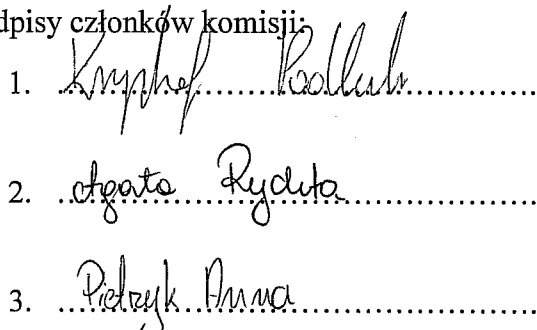 dpisy członków komisji:
1. Krzysztof
2. Agata Ryduta
3. Pietrzyk Anna